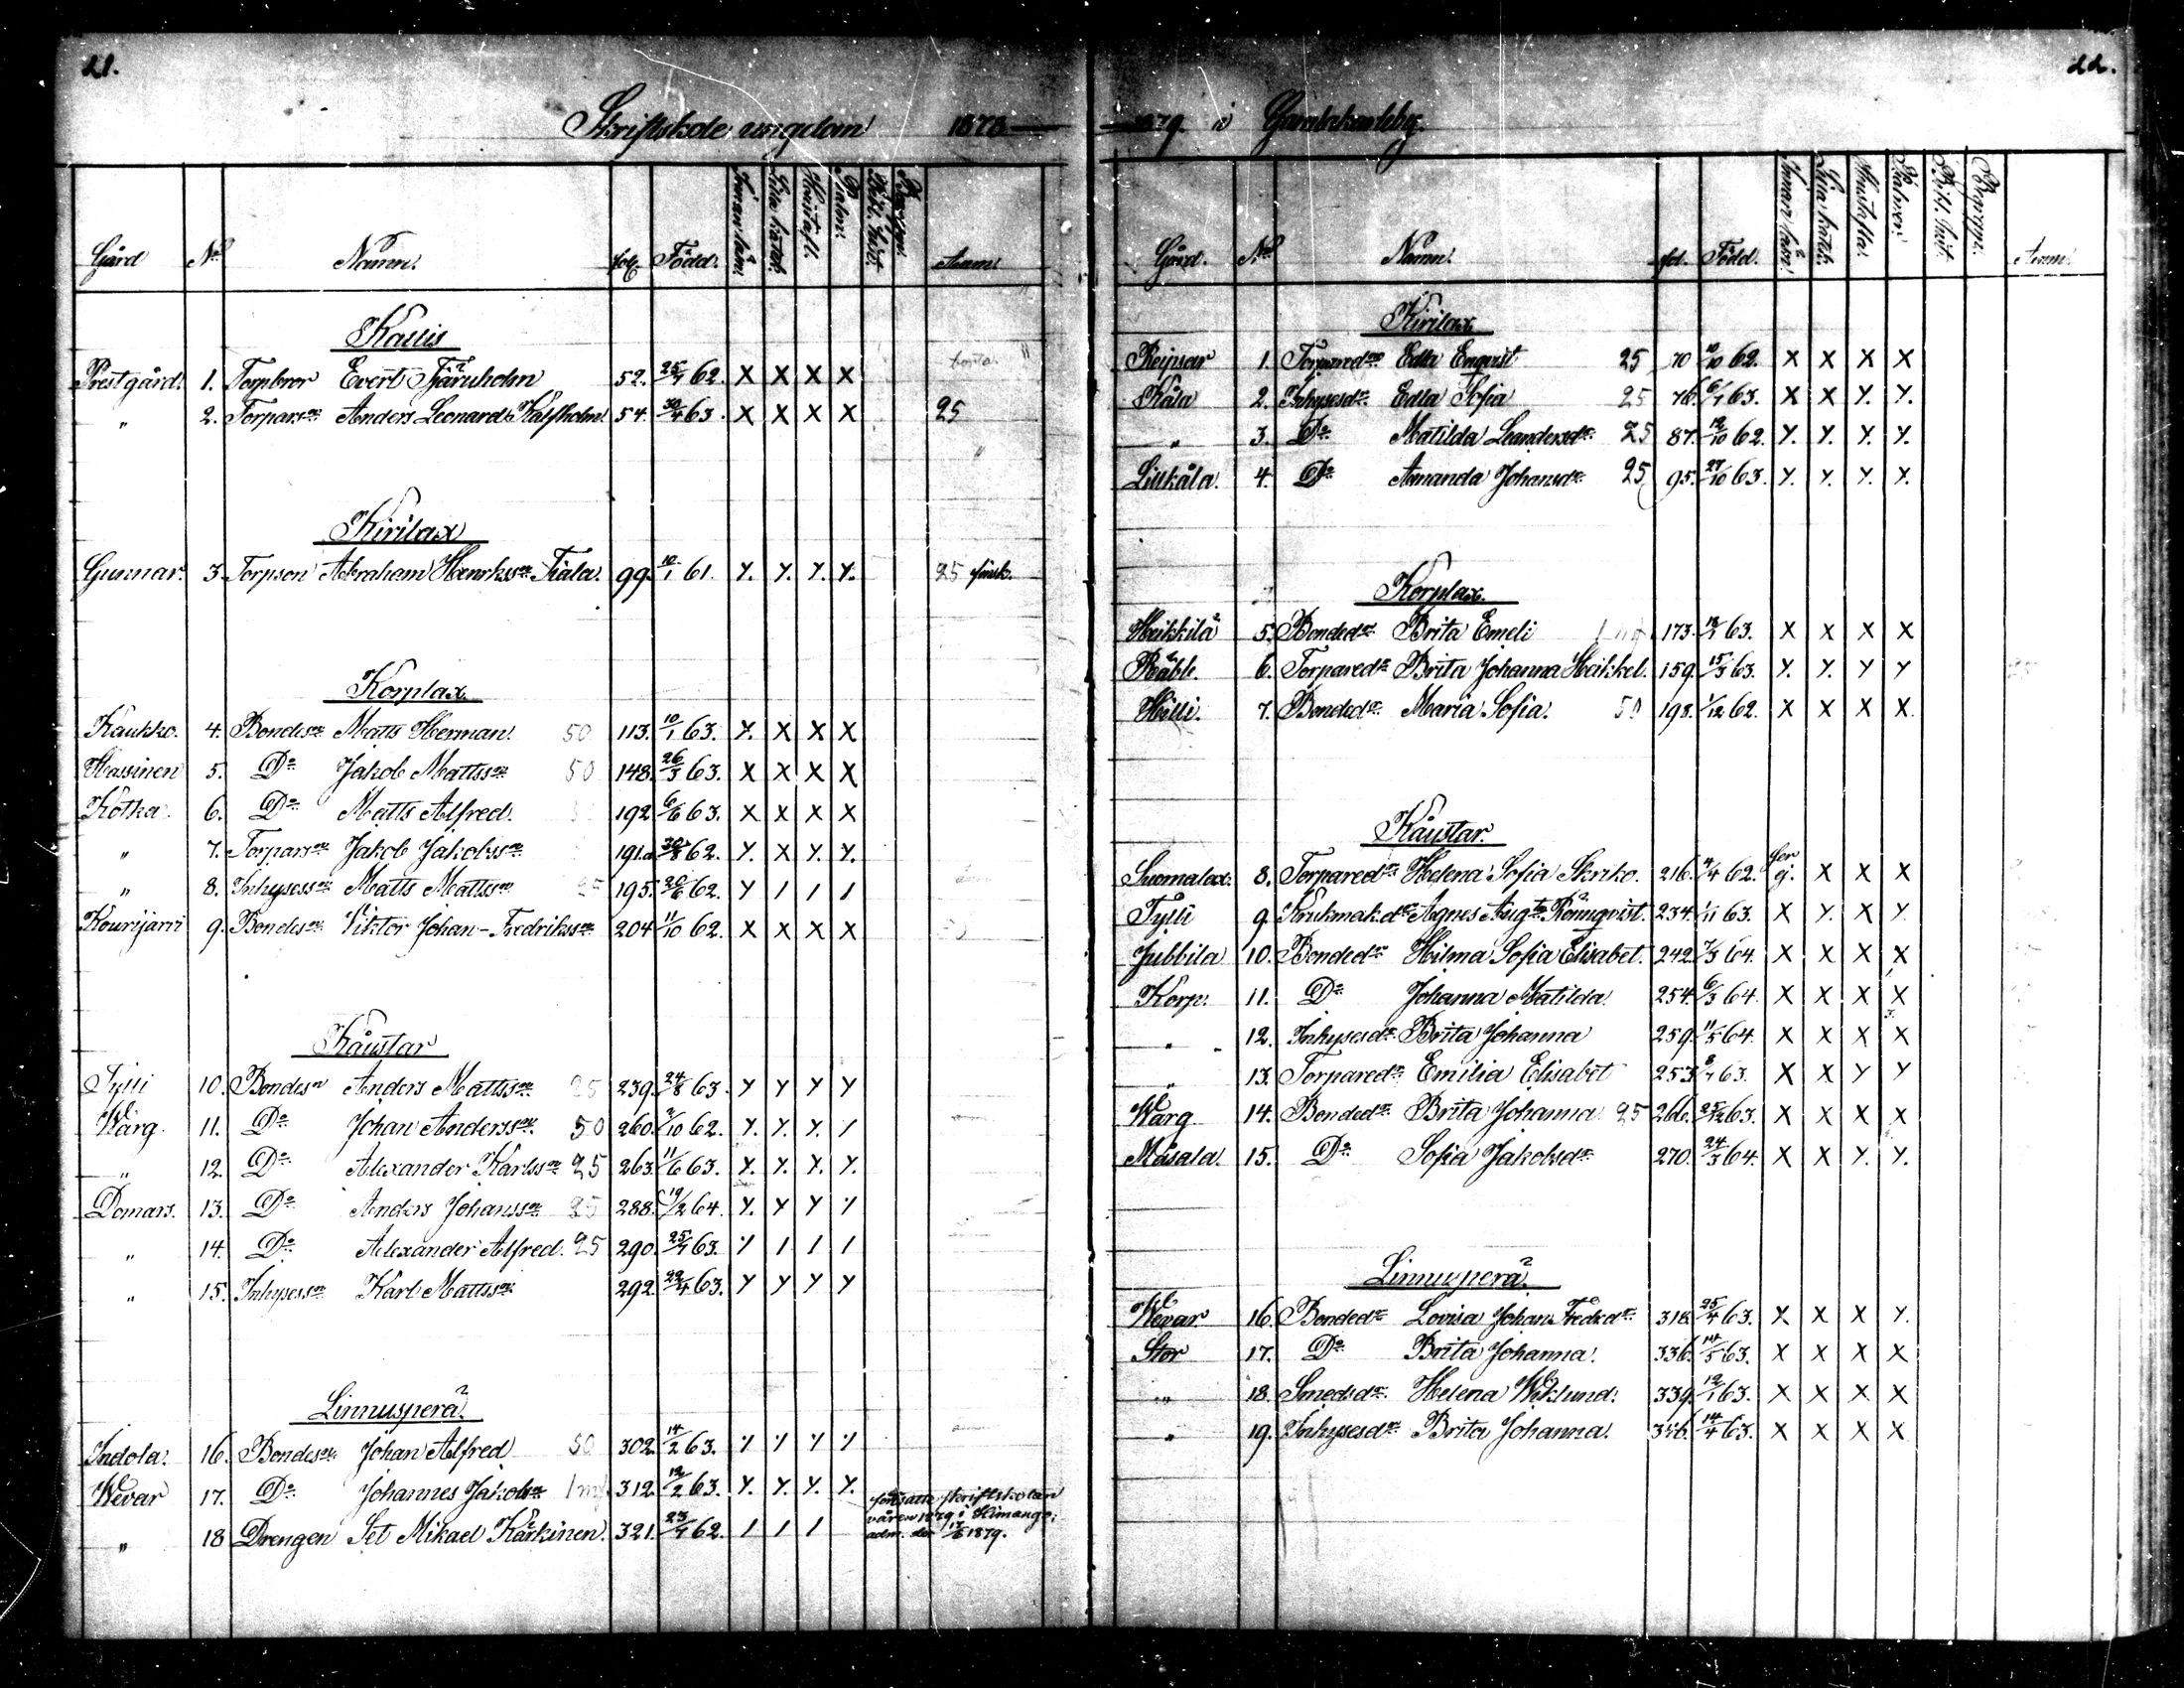 21.
Skriftskole ungdom 1878 —
Gård No Namn. fol. Född. Innan läsn. Lilla katek. Hustafl. Psalmer. Bibl. hist. Begrepp. Anm.
Kallis
Prestgård. 1. Torpbror Evert Tjäruholm 52. 25/7 62. X X X X
" 2. Torpareson Anders Leonard Kalfholm. 54. 30/4 63. X X X X 25
Kirilax
Gunnar. 3. Torpson Abraham Henrksson Tiala. 99. 10/1 61. Y. Y. Y. Y. 25 finsk.
Korplax
Kaukko. 4. Bondeson Matts Herman. 50 113. 10/1 63. Y. X X X
Hassinen 5. Do Jakob Mattsson 50 148. 26/3 63. X X X X
Kotka. 6. Do Matts Alfred. 192 6/6 63. X X X X
" 7. Torpareson Jakob Jakobsson 191.a 30/8 62. Y. X Y. Y.
" 8. Inhysesson Matts Mattsson 25 195. 20/6 62. Y / / /
Kourijarvi 9. Bondeson Viktor Johan-Fredriksson 204 11/10 62. X X X X 50
Kåustar
Tylli 10. Bondeson Anders Mattsson 25 239. 24/8 63. Y Y Y Y
Warg. 11. Do Johan Andersson. 50 260. 2/10 62. Y. Y. Y. Y
" 12. Do Alexander Karlsson 25 263. 11/6 63. Y. Y. Y. Y.
Domars. 13. Do Anders Johansson 25 288. 19/2 64. Y. Y Y Y
" 14. Do Alexander Alfred. 25 290. 25/7 63. Y / / /
" 15. Inhysesson Karl Mattsson 292. 22/4 63. Y Y Y Y
Linnusperä
Indola. 16. Bondeson Johan Alfred 50 302. 14/2 63. Y Y Y Y
Wevar 17. Do Johannes Jakobsson 1 mk 312. 12/2 63. Y. Y. Y. Y.
" 18 Drengen Set Mikael Karkinen. 321. 23/7 62. / / / fortsatte skriftskolan
våren 1879 i Himango;
adm. der 1879.
22.
— 1879. i Gamlakarleby.
Gård. No Namn. fol. Född. Innan läsn. Lilla katek. Hustafla. Psalmer. Bibl. hist. Begrepp. Anm.
Kirilax
Reipsar 1. Torparedr Edla Enqvist 25 70 10/10 62. X X X X
Kåla 2. Inhysesdr Edla Sofia 25 76. 6/1 63. X X Y. Y.
" 3. Do Matilda Leandersdr 25 87. 12/10 62. Y. Y. Y. Y.
Lillkåla. 4. Do Amanda Johansdr 25 95. 27/10 63. Y. Y. Y. Y.
Korplax.
Heikkilä 5. Bondedr Brita Emeli 1 mk 173. 18/1 63. X X X X
Räbb. 6. Torparedr Brita Johanna Häikkel. 159. 15/3 63. Y. Y. Y Y
Hilli. 7. Bondedr Maria Sofia. 50 198. 1/12 62. X X X X.
Kåustar.
Suomalax. 8. Torparedr Helena Sofia Skriko. 216. 4/4 62. ej. X X X
Tylli 9. Krukmak.dr Agnes Augta Rönnqvist. 234. 1/11 63. X Y. X Y.
Jubbila 10. Bondedr Hilma Sofia Elisabet. 242. 7/3 64. X X X X
Korp. 11. Do Johanna Matilda. 254. 6/3 64. X X X X
" 12. Inhysesdr Brita Johanna 259. 11/5 64. X X X X
" 13. Torparedr Emilia Elisabet 253. 8/7 63. X X Y Y
Warg 14. Bondedr Brita Johanna 25 266. 25/12 63. X X X X
Måsala. 15. Do Sofia Jakobsdr 270. 24/3 64. X X Y. Y.
Linnusperä
Wevar 16. Bondedr Lovisa Johan Fredr.dr 318. 25/4 63. X X X Y.
Stor 17. Do Brita Johanna. 336. 14/5 63. X X X X
" 18. Smedsdr Helena Wiklund. 339. 12/1 63. X X X X
" 19. Inhysesdr Brita Johanna. 346. 14/4 63. X X X X